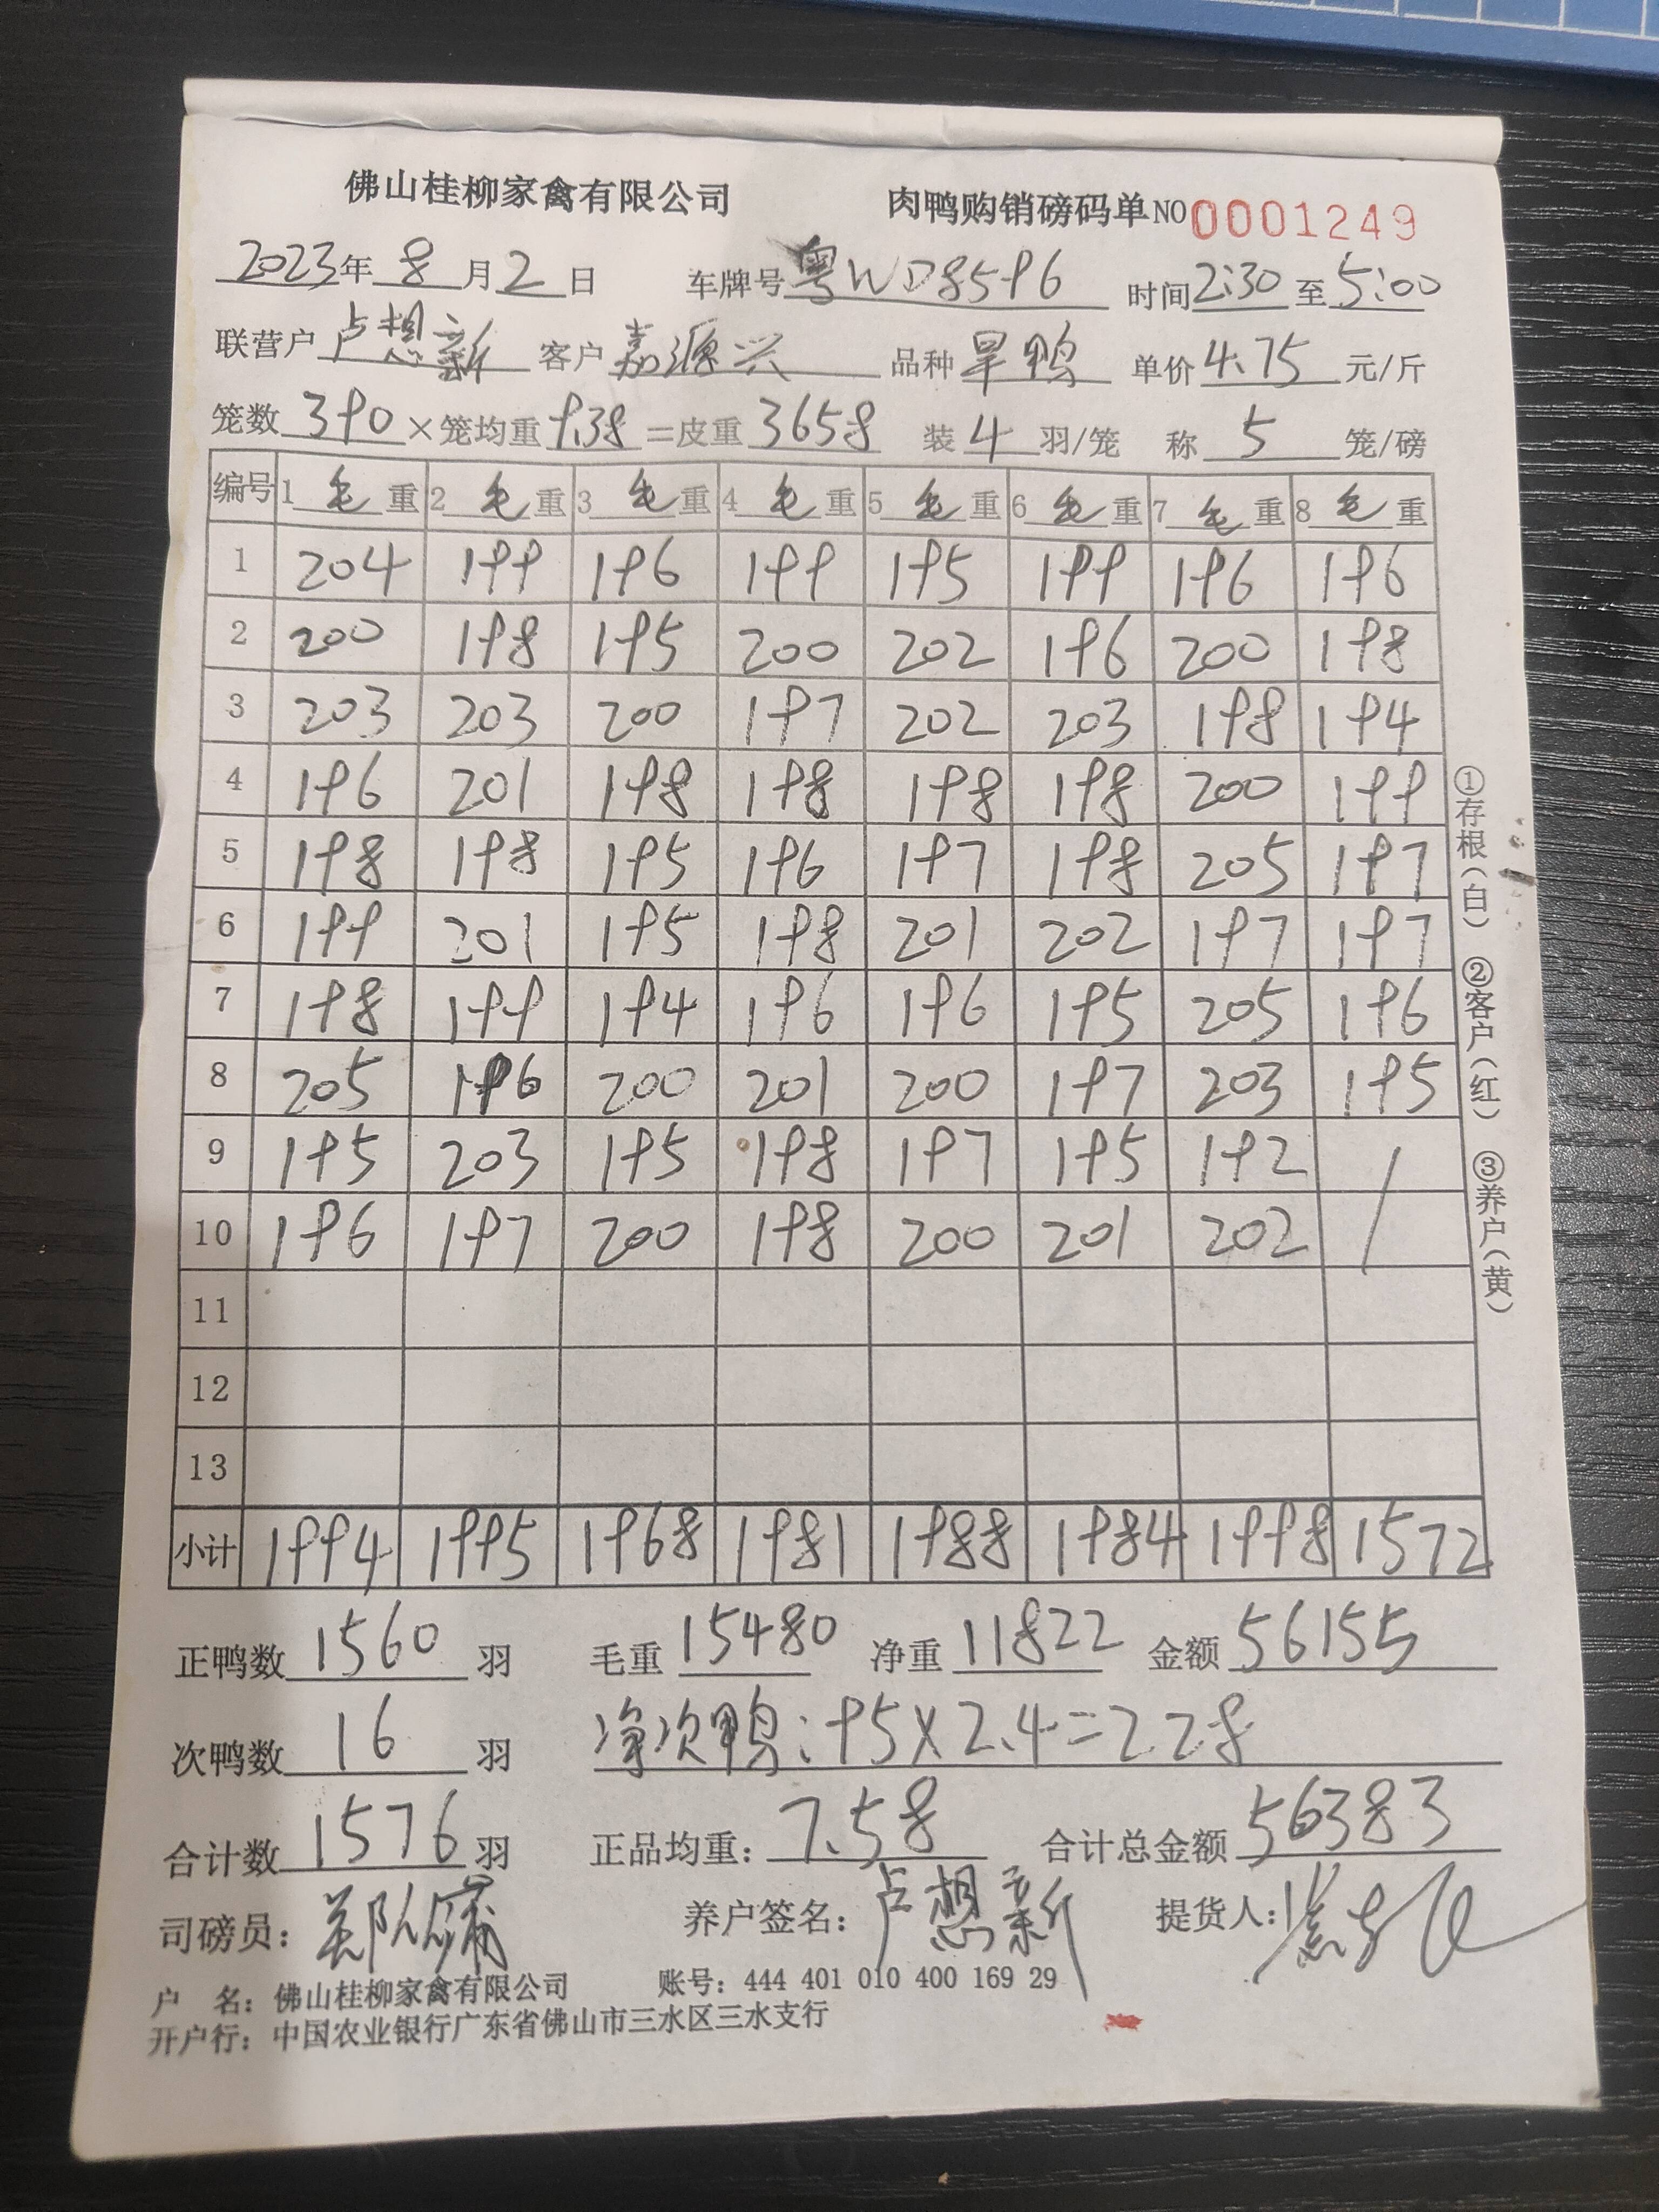 佛山桂柳家禽有限公司 肉鸭购销磅码单NO0001249
2023年8月2日 车牌号粤WD8596 时间2:30至5:00
联营户卢想新 客户嘉源兴 品种旱鸭 单价4.75元/斤
笼数390×笼均重9.38=皮重3658 装4羽/笼 称5笼/磅
编号 1毛重 2毛重 3毛重 4毛重 5毛重 6毛重 7毛重 8毛重
1 204 199 196 199 195 199 196 196
2 200 198 195 200 202 196 200 198
3 203 203 200 197 202 203 198 194
4 196 201 198 198 198 198 200 199
5 198 198 195 196 197 198 205 197
6 199 201 195 198 201 202 197 197
7 198 199 194 196 196 195 205 196
8 205 196 200 201 200 197 203 195
9 195 203 195 198 197 195 192 /
10 196 197 200 198 200 201 202
11
12
13
小计 1994 1995 1968 1981 1988 1984 1998 1572
正鸭数1560羽 毛重15480 净重11822 金额56155
次鸭数16羽 净次鸭:95×2.4=228
合计数1576羽 正品均重:7.58 合计总金额56383
司磅员: 郑 养户签名:卢想新 提货人:
户 名:佛山桂柳家禽有限公司 账号:444 401 010 400 169 29
开户行:中国农业银行广东省佛山市三水区三水支行
①存根(白) ②客户(红) ③养户(黄)